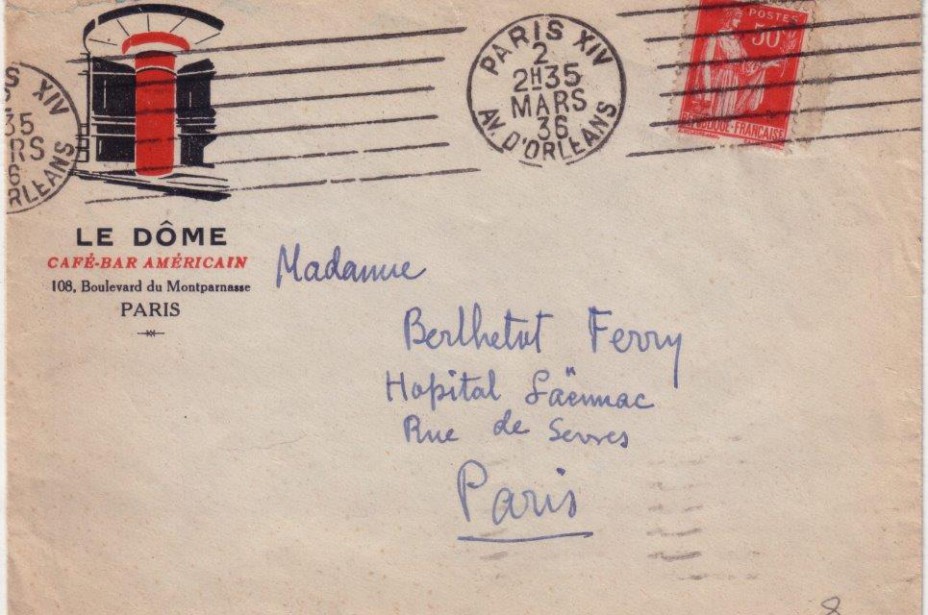 S XIV
35
RS
6
RLEANS
PARIS XIV
2
2H35
MARS
36
AV. D'ORLEANS
POSTES
50
RÉPUBLIQUE-FRANÇAISE
LE DÔME
CAFÉ-BAR AMÉRICAIN
108, Boulevard du Montparnasse
PARIS
Madame
Berthetot Ferry
Hopital Läennac
Rue de Sevres
Paris
8